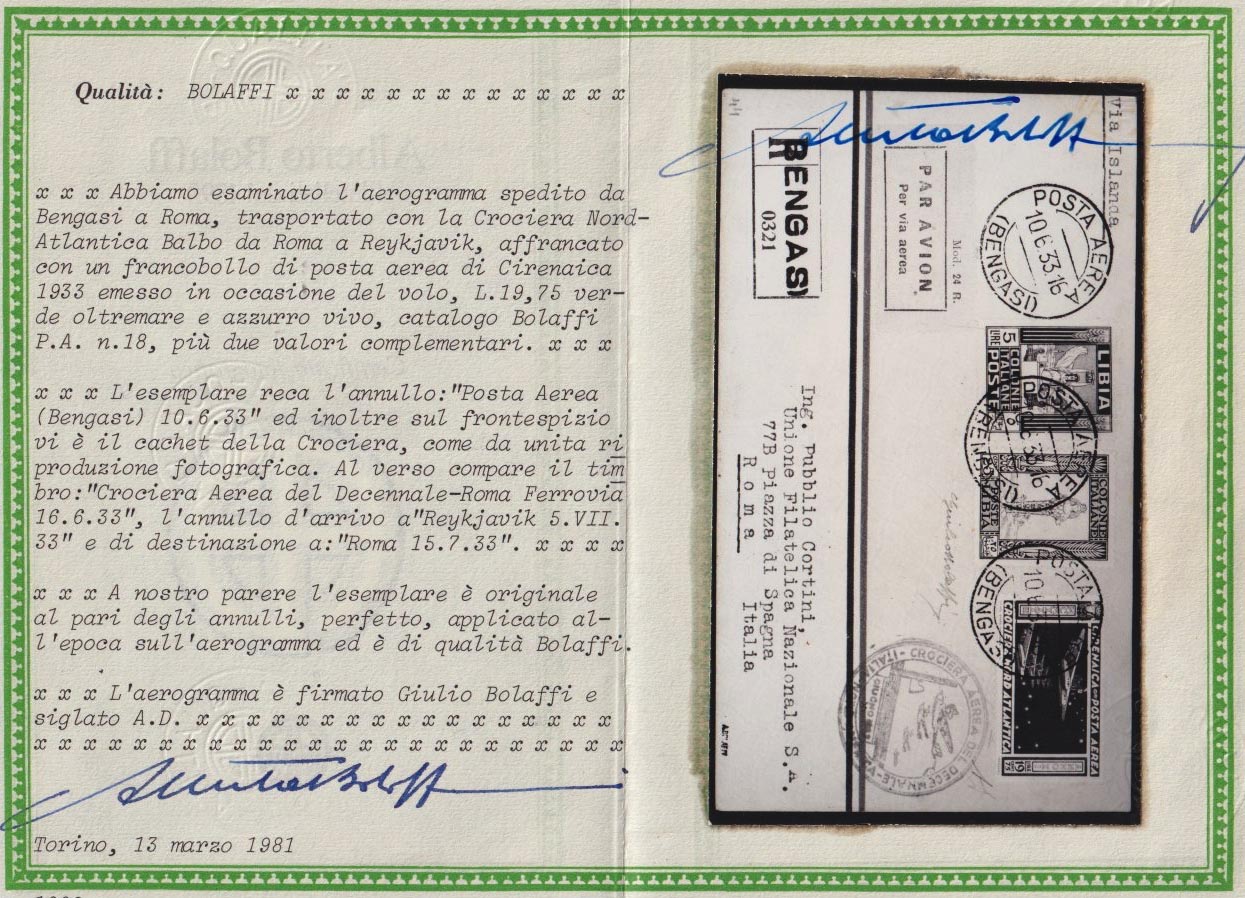 Qualità: BOLAFFI x x x x x x x x x x x x x x x x x
x x x Abbiamo esaminato l'aerogramma spedito da
Bengasi a Roma, trasportato con la Crociera Nord-
Atlantica Balbo da Roma a Reykjavik, affrancato
con un francobollo di posta aerea di Cirenaica
1933 emesso in occasione del volo, L.19,75 ver-
de oltremare e azzurro vivo, catalogo Bolaffi
P.A. n.18, più due valori complementari. x x x
x x x L'esemplare reca l'annullo:"Posta Aerea
(Bengasi) 10.6.33" ed inoltre sul frontespizio
vi è il cachet della Crociera, come da unita ri
produzione fotografica. Al verso compare il tim
bro:"Crociera Aerea del Decennale-Roma Ferrovia
16.6.33", l'annullo d'arrivo a"Reykjavik 5.VII.
33" e di destinazione a:"Roma 15.7.33". x x x x
x x x A nostro parere l'esemplare è originale
al pari degli annulli, perfetto, applicato al-
l'epoca sull'aerogramma ed è di qualità Bolaffi.
x x x L'aerogramma è firmato Giulio Bolaffi e
siglato A.D. x x x x x x x x x x x x x x x x x x x x
x x x x x x x x x x x x x x x x x x x x x x x x x x x x
Torino, 13 marzo 1981
Via Islanda
POSTA AEREA
10.6.33.16
(BENGASI)
PAR AVION
Per via aerea
Mod. 24 R.
R
BENGASI
0321
LIBIA
5 LIRE
COLONIE
ITALIANE
POSTE
POSTA AEREA
COLONIE
ITALIANE
POSTE
LIBIA
POSTA
(BENGAS
CIRENAICA POSTA AEREA
CROCIERA NORD ATLANTICA
19
CROCIERA AEREA DEL DECENNALE
Ing. Pubblio Cortini,
Unione Filatelica Nazionale S.A.
77B Piazza di Spagna
Roma Italia